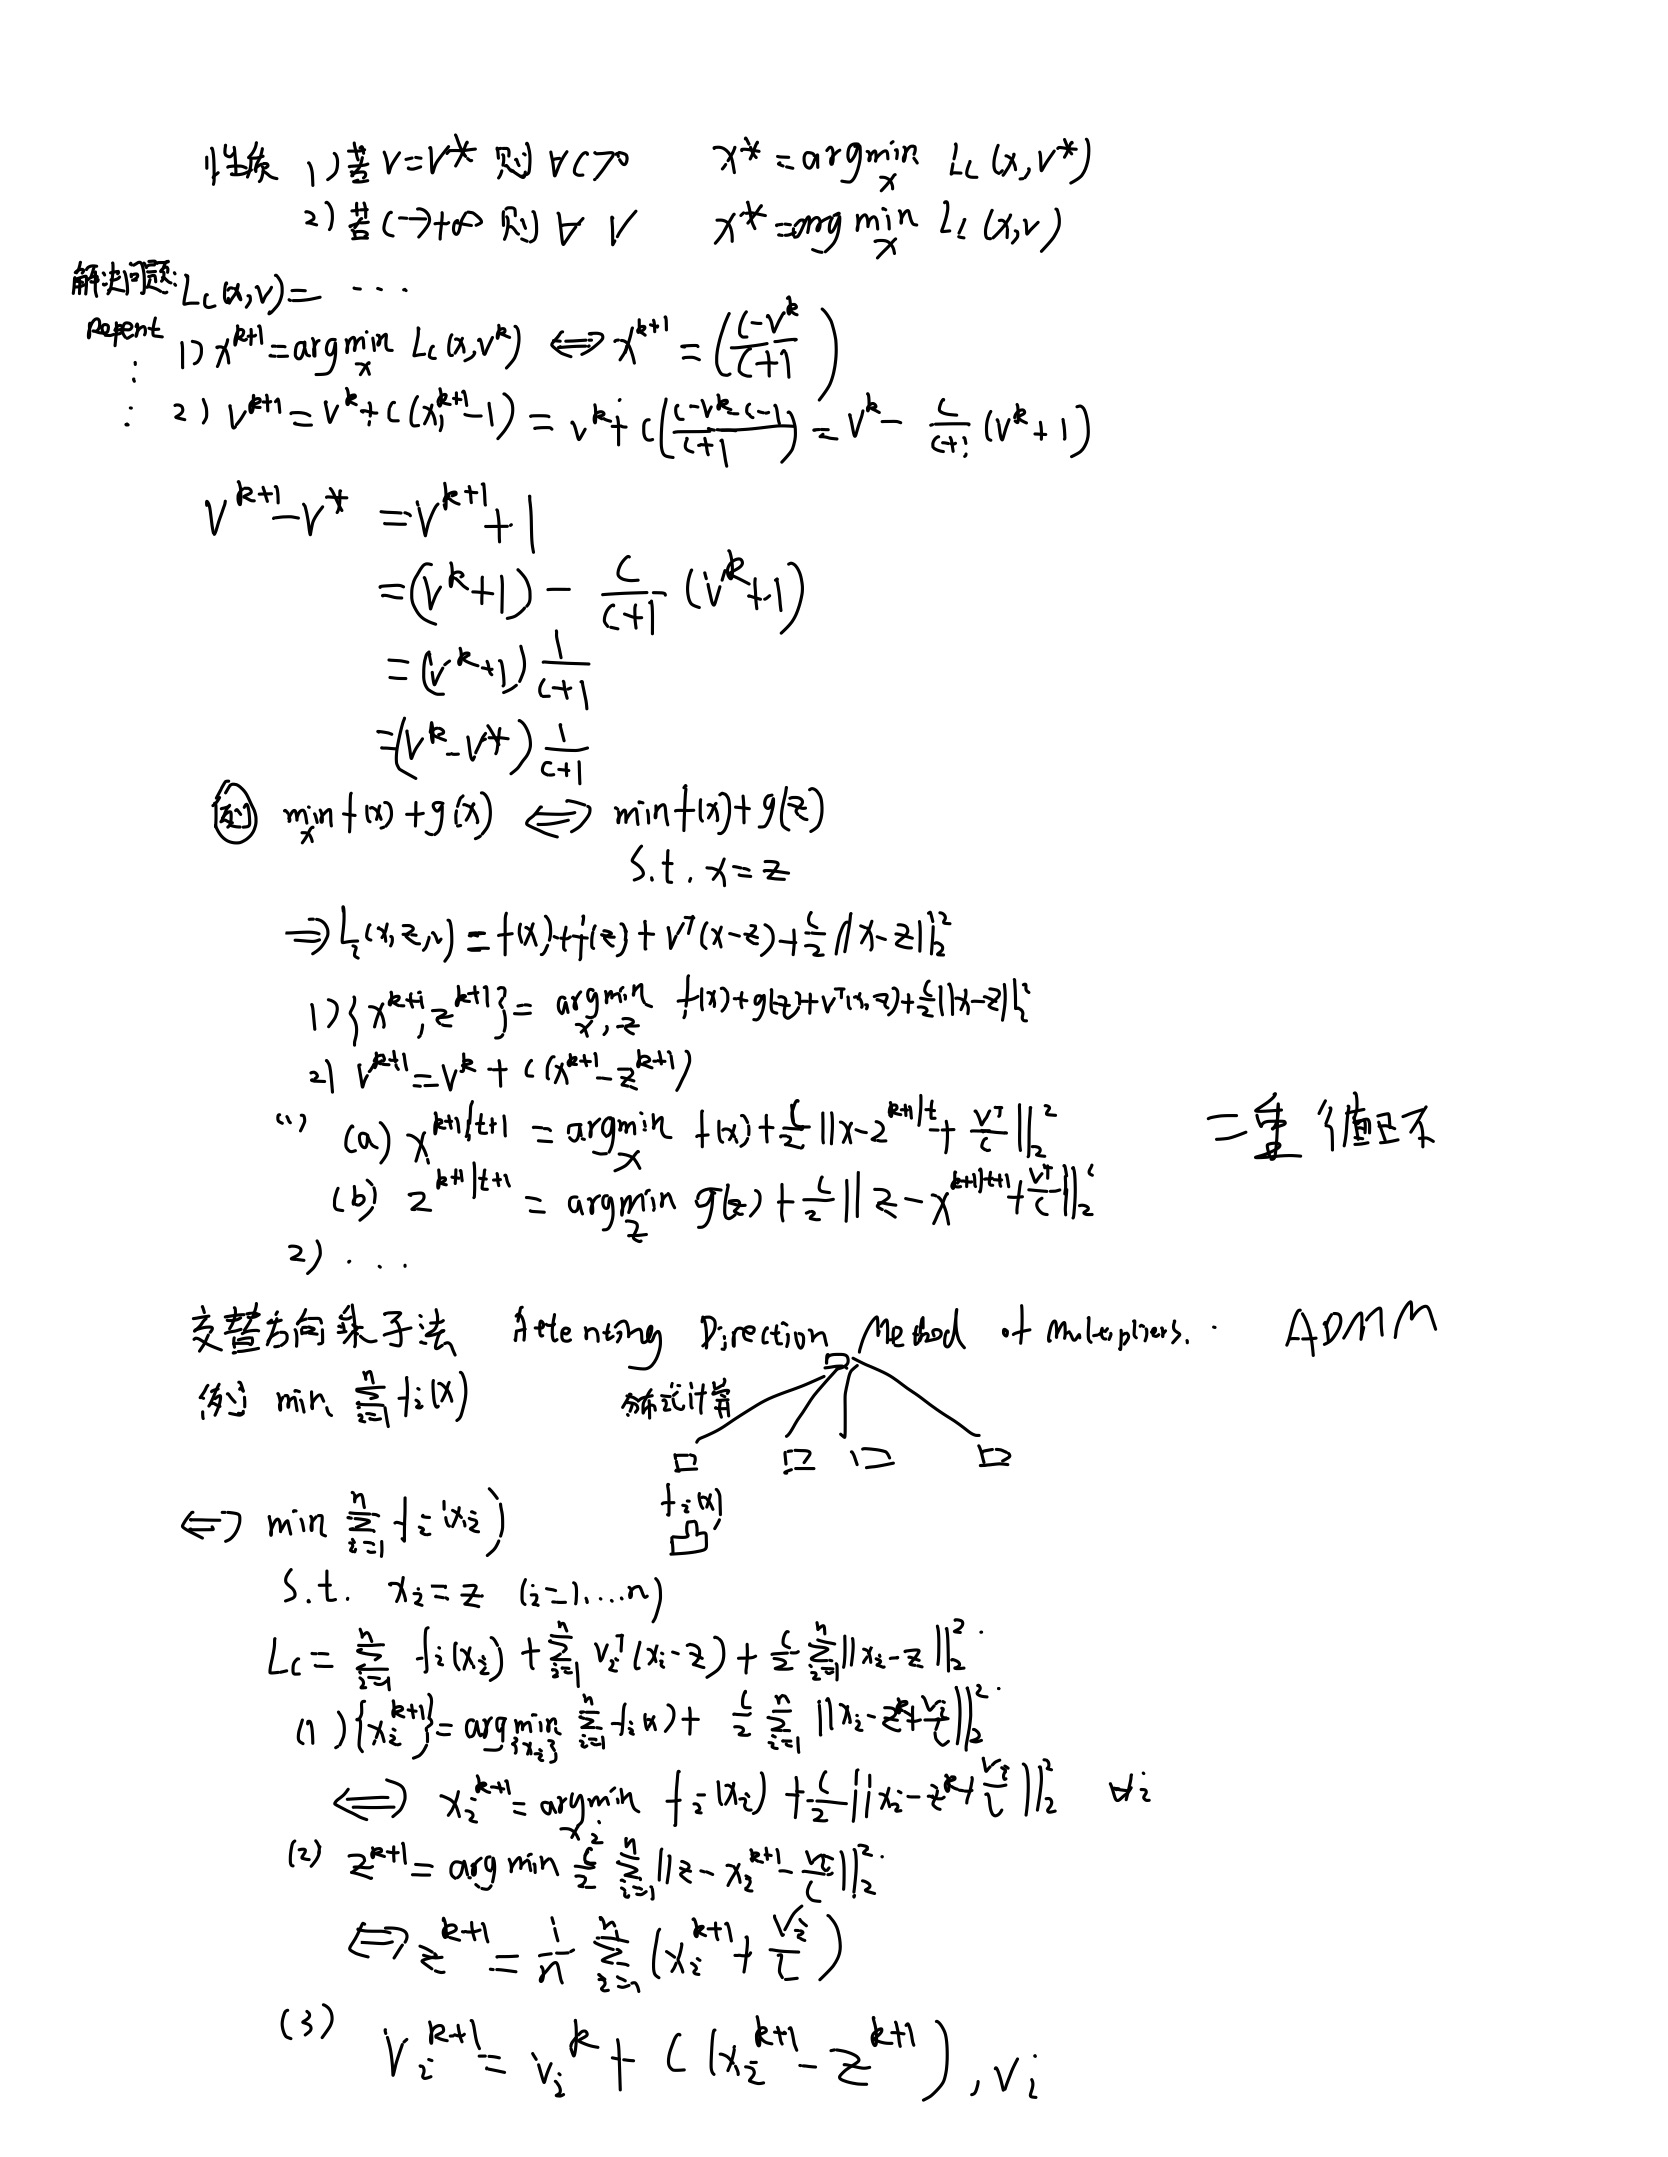 性质 1) 若 v=v* 则 ∀c>0 x* = argmin_x L_c(x,v*)
2) 若 c→+∞ 则 ∀ v x* = argmin_x L_c(x,v)
解决问题: L_c(x,v) = ...
Repeat 1) x^{k+1} = argmin_x L_c(x,v^k) ⟺ x^{k+1} = ((c-v^k)/(c+1) )
2) v^{k+1} = v^k + c(x_1^{k+1}-1) = v^k + c((c-v^k-c-1)/(c+1)) = v^k - c/(c+1) (v^k+1)
v^{k+1} - v* = v^{k+1} + 1
= (v^k+1) - c/(c+1) (v^k+1)
= (v^k+1) 1/(c+1)
= (v^k-v*) 1/(c+1)
例 min_x f(x)+g(x) ⟺ min f(x)+g(z)
s.t. x=z
⇒ L(x,z,v) = f(x)+f(z)+v^T(x-z)+c/2 ||x-z||_2^2
1) {x^{k+1}, z^{k+1}} = argmin_{x,z} f(x)+g(z)+v^T(x-z)+c/2 ||x-z||_2^2
2) v^{k+1} = v^k + c(x^{k+1}-z^{k+1})
(1) (a) x^{k+1|t+1} = argmin_x f(x)+c/2 ||x-z^{k+1|t}+v^T/c||_2^2 二重
(b) z^{k+1|t+1} = argmin_z g(z)+c/2 ||z-x^{k+1|t+1}+v^T/c||_2^2
2) ...
交替方向乘子法 Alternating Direction Method of multipliers. ADMM
例 min Σ_{i=1}^n f_i(x) 分布式计算
f_i(x)
⟺ min Σ_{i=1}^n f_i(x_i)
s.t. x_i=z (i=1....n)
L_c = Σ_{i=1}^n f_i(x_i) + Σ_{i=1}^n v_i^T(x_i-z) + c/2 Σ_{i=1}^n ||x_i-z||_2^2
(1) {x_i^{k+1}} = argmin_{{x_i}} Σ_{i=1}^n f_i(x) + c/2 Σ_{i=1}^n ||x_i-z^k+v_i/c||_2^2
⟺ x_i^{k+1} = argmin_{x_i} f_i(x_i) + c/2 ||x_i-z^k+v_i/c||_2^2 ∀i
(2) z^{k+1} = argmin c/2 Σ_{i=1}^n ||z-x_i^{k+1}-v_i/c||_2^2
⟺ z^{k+1} = 1/n Σ_{i=n}^n (x_i^{k+1}+v_i/c)
(3) v_i^{k+1} = v_i^k + c(x_i^{k+1}-z^{k+1}), ∀i